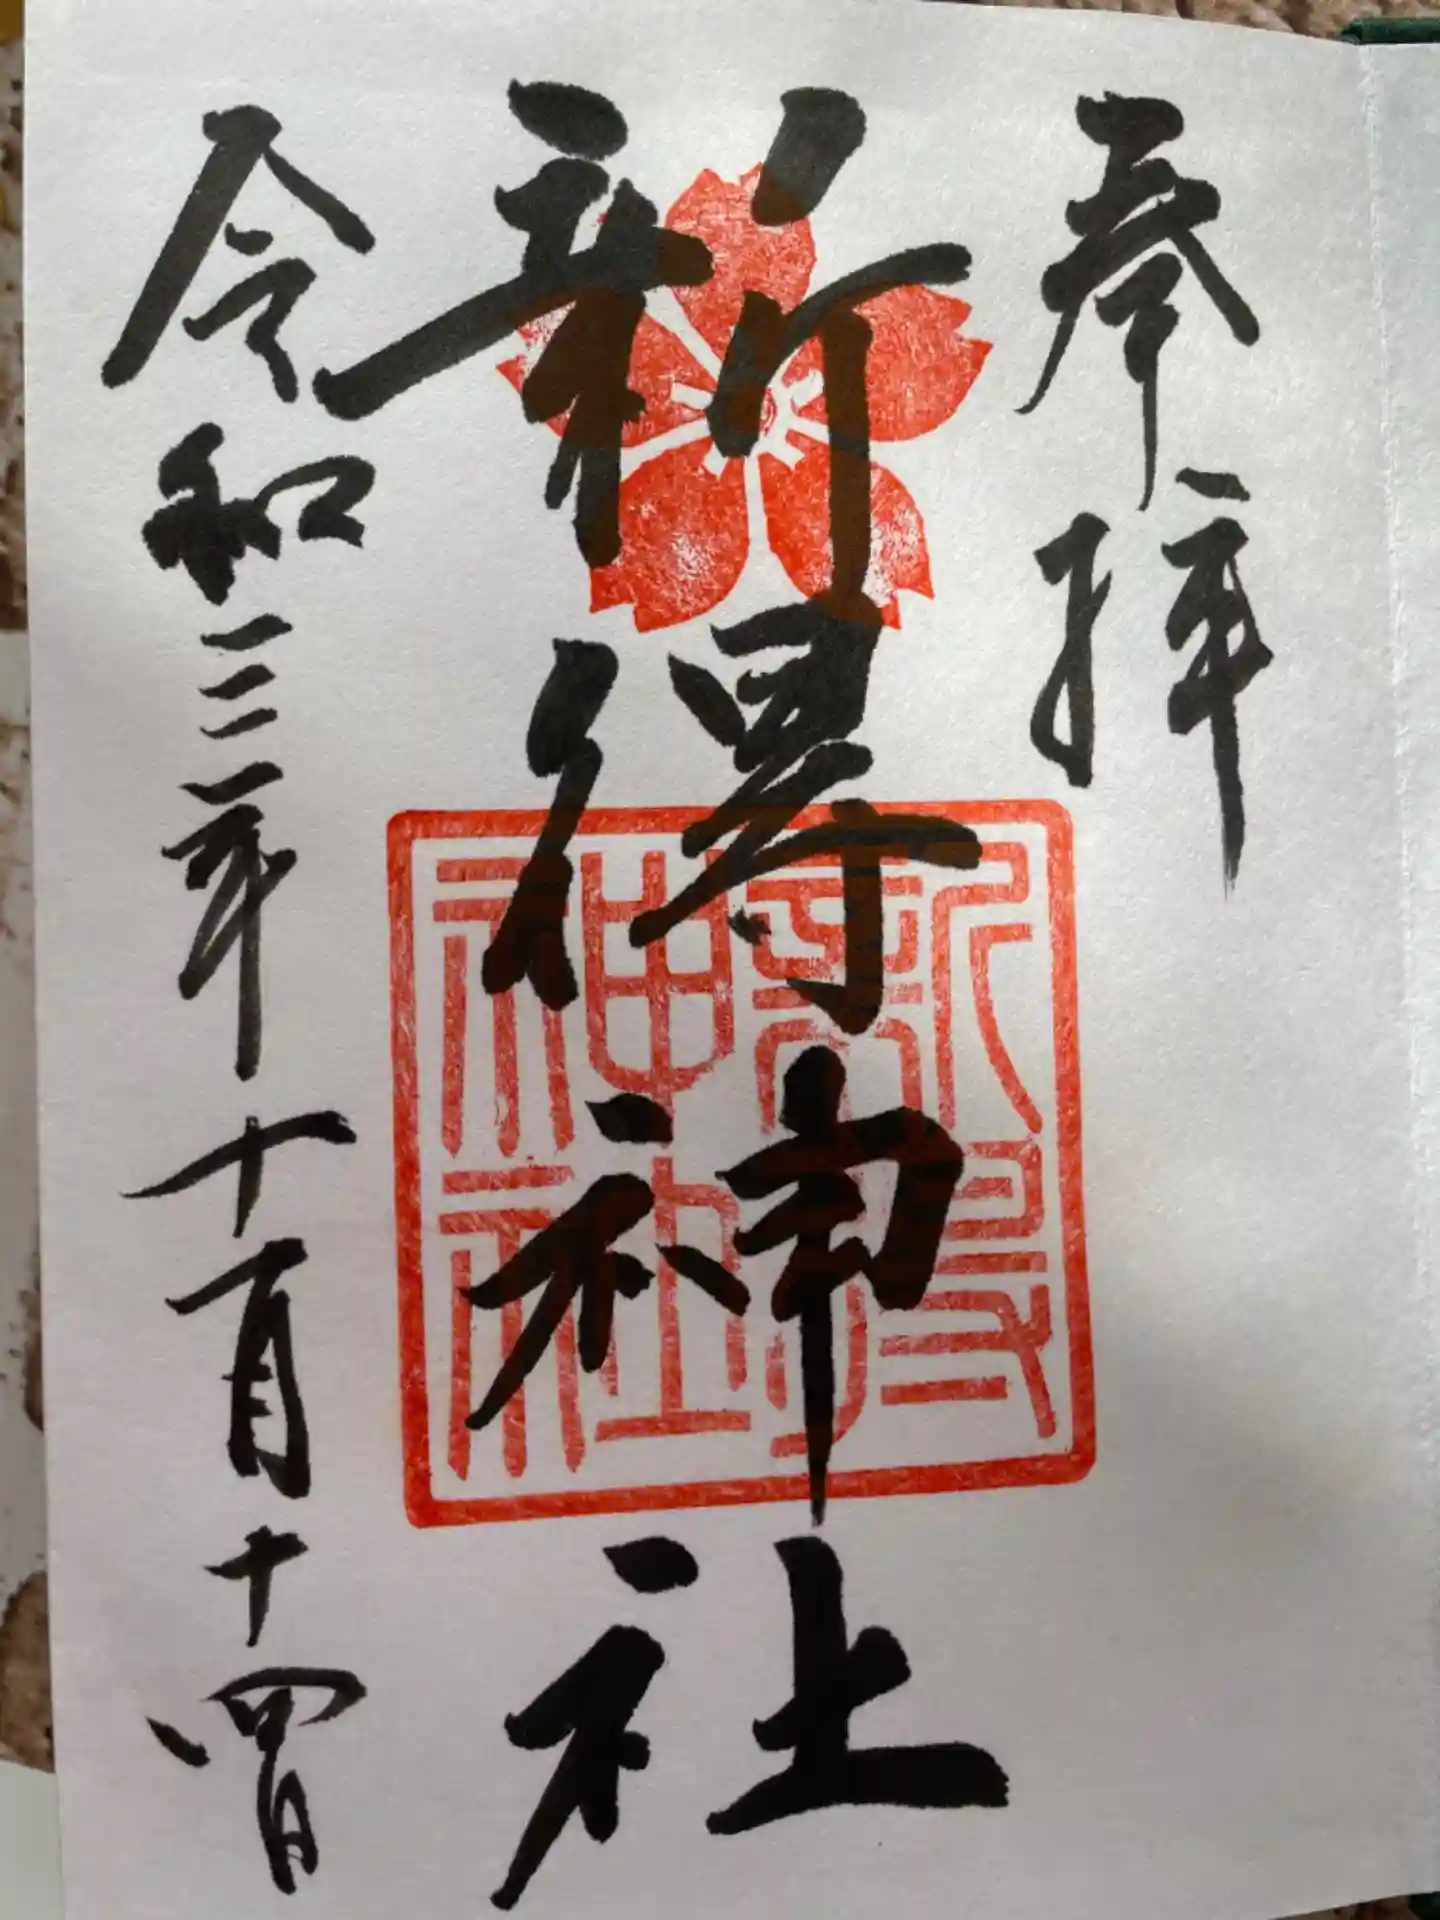 奉拝
新得神社
令和三年十一月十四日
新得
神社